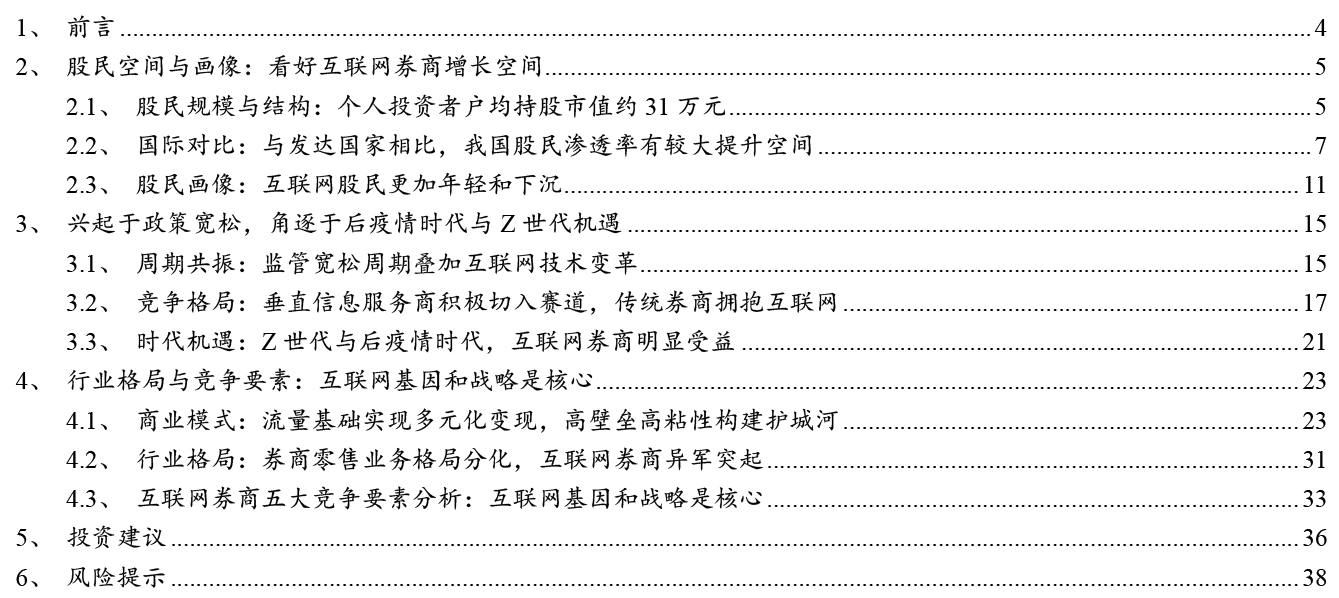 1、 前言 4
2、 股民空间与画像：看好互联网券商增长空间 5
2.1、 股民规模与结构：个人投资者户均持股市值约 31 万元 5
2.2、 国际对比：与发达国家相比，我国股民渗透率有较大提升空间 7
2.3、 股民画像：互联网股民更加年轻和下沉 11
3、 兴起于政策宽松，角逐于后疫情时代与 Z 世代机遇 15
3.1、 周期共振：监管宽松周期叠加互联网技术变革 15
3.2、 竞争格局：垂直信息服务商积极切入赛道，传统券商拥抱互联网 17
3.3、 时代机遇：Z 世代与后疫情时代，互联网券商明显受益 21
4、 行业格局与竞争要素：互联网基因和战略是核心 23
4.1、 商业模式：流量基础实现多元化变现，高壁垒高粘性构建护城河 23
4.2、 行业格局：券商零售业务格局分化，互联网券商异军突起 31
4.3、 互联网券商五大竞争要素分析：互联网基因和战略是核心 33
5、 投资建议 36
6、 风险提示 38